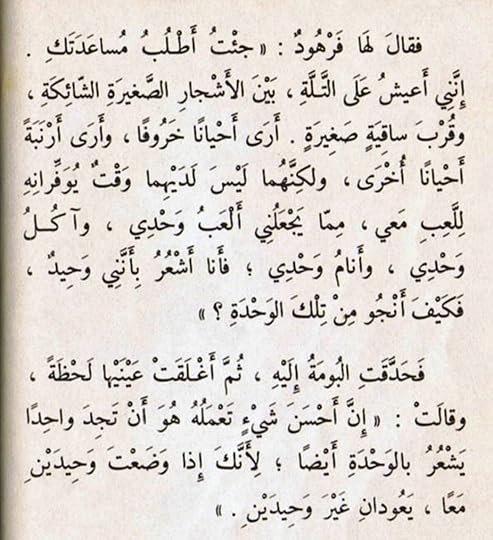 فَقالَ لَها فَرْهُودٌ : « جِئْتُ أَطْلُبُ مُساعَدَتَكِ .
إِنَّنِي أَعيشُ عَلَى التَّلَّةِ ، بَيْنَ الأَشْجارِ الصَّغيرَةِ الشّائِكَةِ ،
وقُرْبَ ساقِيَةٍ صَغِيرَةٍ . أَرَى أَحْيانًا خَرُوفًا ، وأَرَى أَرْنَبَةً
أَحْيانًا أُخْرَى ، ولكِنَّهُما لَيْسَ لَدَيْهِما وَقْتٌ يُوَفِّرانِهِ
لِلَّعِبِ مَعي ، مِمّا يَجْعَلُنِي أَلْعَبُ وَحْدِي ، وآكُلُ
وَحْدِي ، وأَنامُ وَحْدِي ؛ فأَنا أَشْعُرُ بِأَنَّنِي وَحِيدٌ ،
فَكَيْفَ أَنْجُو مِنْ تِلْكَ الوَحْدَةِ ؟ »
فَحَدَّقَتِ البُومَةُ إِلَيْهِ ، ثُمَّ أَغْلَقَتْ عَيْنَيْها لَحْظَةً ،
وقالَتْ : « إِنَّ أَحْسَنَ شَيْءٍ تَعْمَلُهُ هُوَ أَنْ تَجِدَ واحِدًا
يَشْعُرُ بالوَحْدَةِ أَيْضًا ؛ لِأَنَّكَ إِذا وَضَعْتَ وَحِيدَيْنِ
مَعًا ، يَعُودانِ غَيْرَ وَحِيدَيْنِ . »